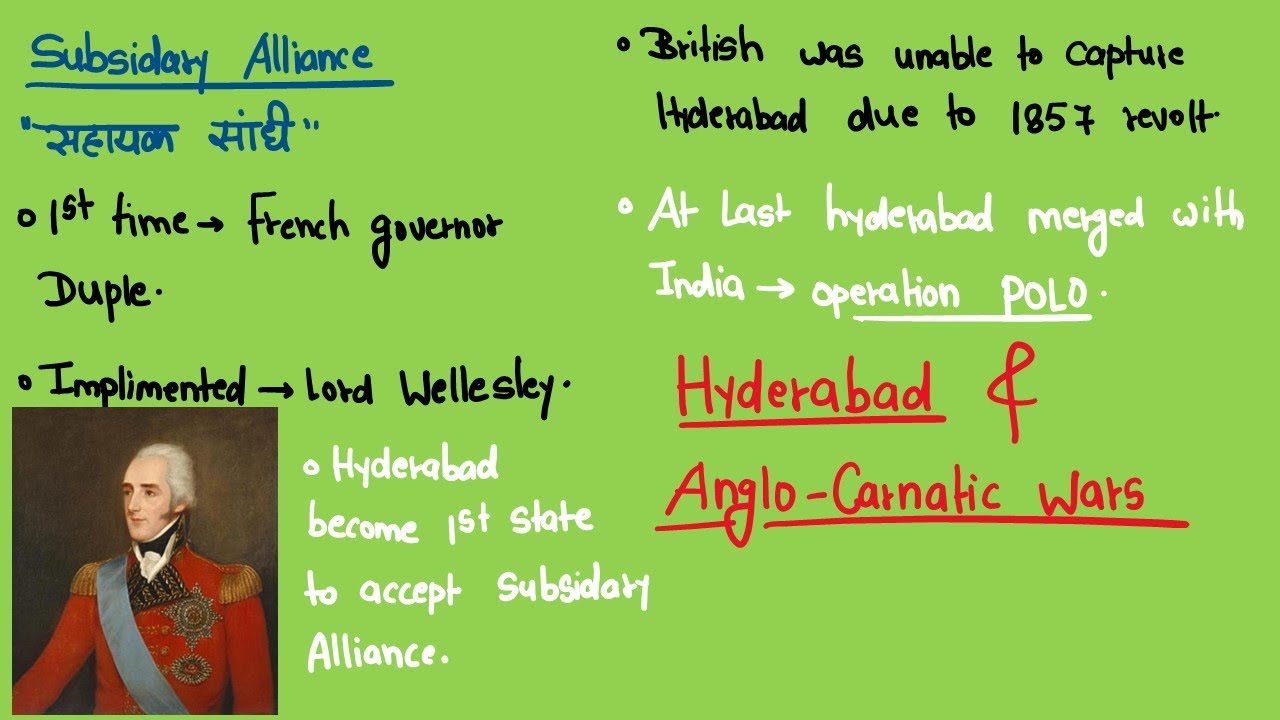 Subsidary Alliance
"सहायक सांधी"
• 1st time → French governor
Duple.
• Implimented → Lord Wellesley.
• Hyderabad
become 1st state
to accept Subsidary
Alliance.
• British was unable to capture
Hyderabad due to 1857 revolt.
• At Last hyderabad merged with
India → operation POLO.
Hyderabad &
Anglo-Carnatic wars